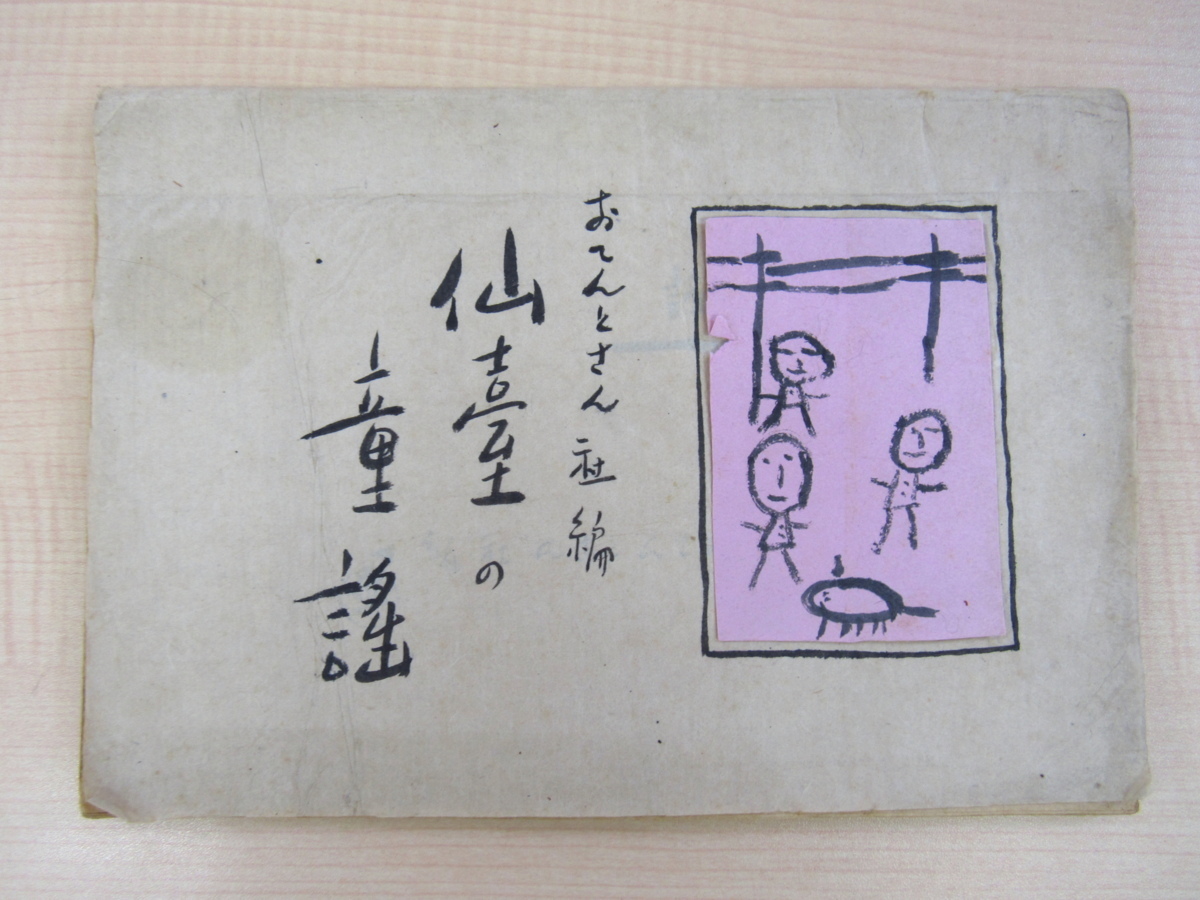 おてんとさん社編
仙臺の
童謠